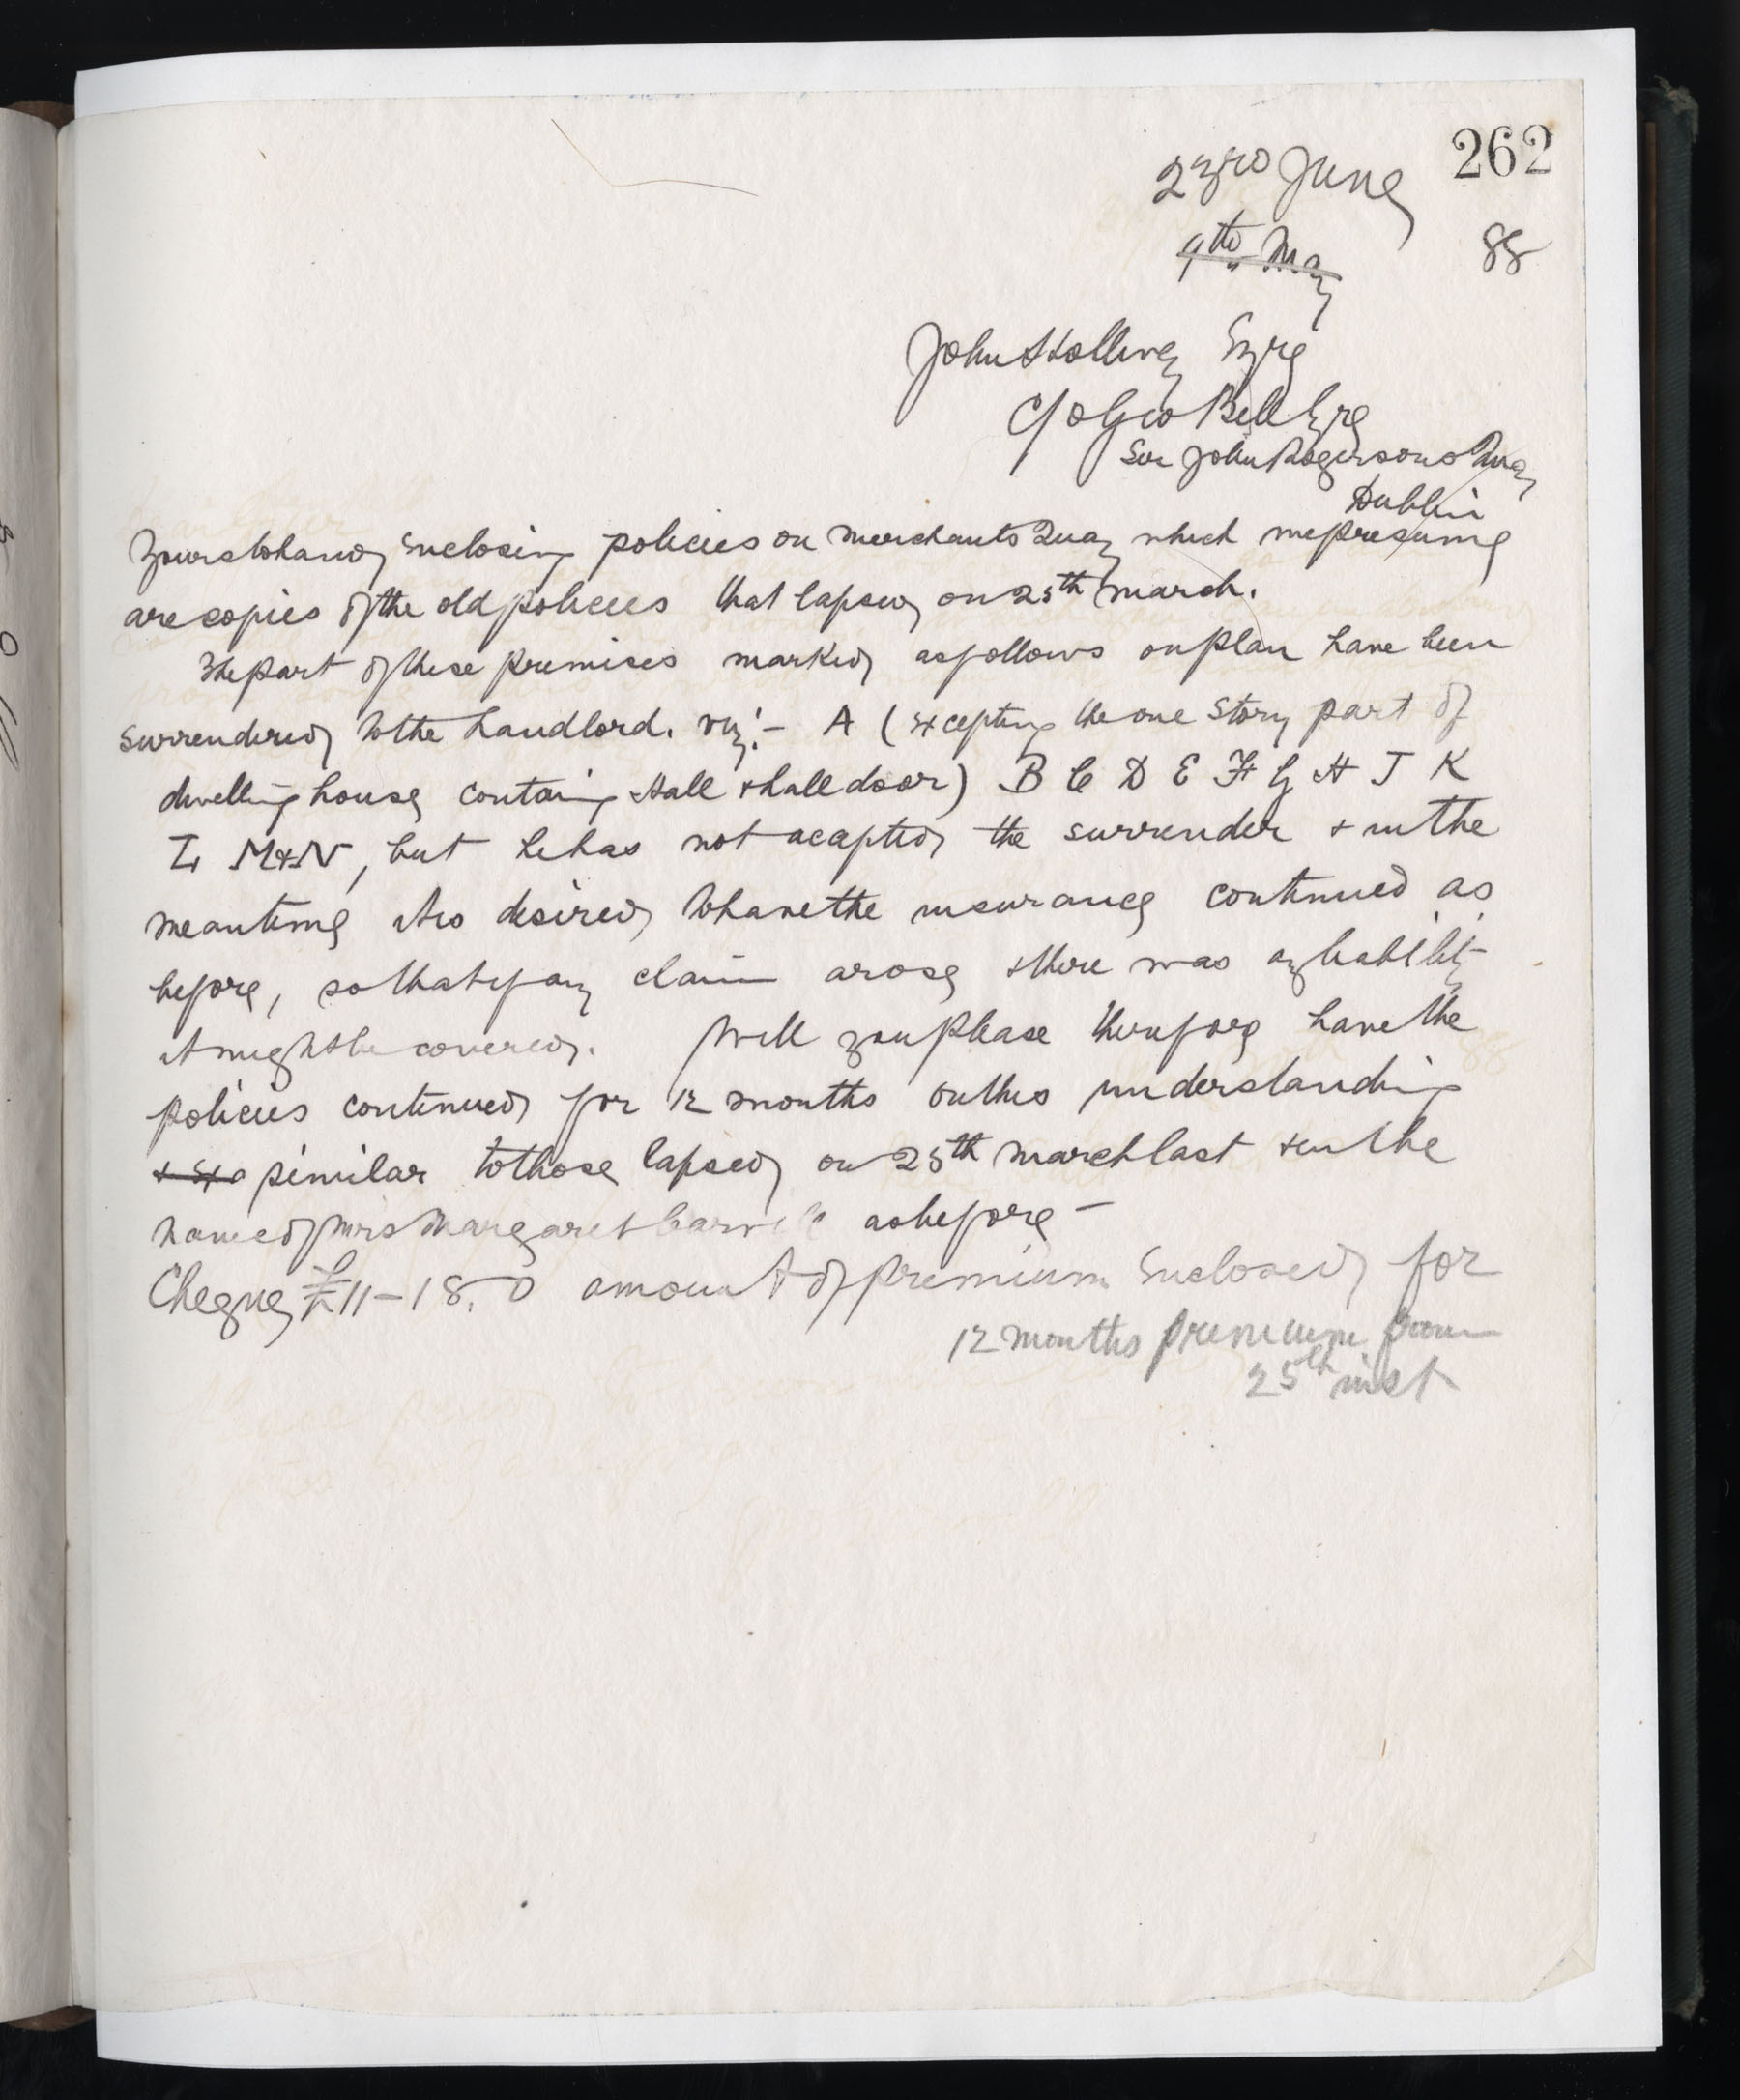 262
23rd June
9th May 88
John Hollwey Esqre
C/o Geo Bell Esqre
Sir John Rogersons Quay
Dublin
Yours to hand enclosing policies on Merchants Quay which we presume
are copies of the old policies that lapsed on 25th March.
The part of these premises marked as follows on plan have been
surrendered to the Landlord. viz:- A (Excepting the one story part of
dwelling house containg Hall & hall door) B C D E F G H J K
L M & N, but he has not acapted the surrender & in the
meantime it is desired to have the insurance continued as
before, so that if any claim arose & there was any liability
it might be covered. Will you please therefore have the
policies continued for 12 months on this understanding
similar to those lapsed on 25th March last & in the
name of Mrs Margaret as before -
Cheque £11-18.0 amount of premium Enclosed for
12 months premium from
25th inst